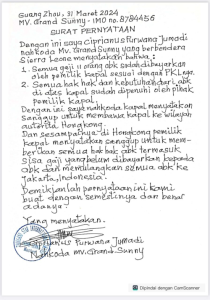 Guang Zhou, 31 Maret 2024
MV. Grand Sunny - IMO no. 8784456
SURAT PERNYATAAN
Dengan ini saya Ciprianus Purwana Jumadi
nahkoda MV. Grand Sunny yang berbendera
Sierra Leone menyatakan bahwa:
1. Semua gaji 11 orang abk sudah dibayarkan
oleh pemilik kapal sesuai dengan PKL nya.
2. Semua hak hak dan kebutuhan dari abk
di atas kapal sudah dipenuhi oleh pihak
pemilik kapal.
Dengan ini sang nahkoda kapal menyatakan
sanggup untuk membawa kapal ke wilayah
autorita Hongkong.
Dan sesampainya di Hongkong pemilik
kapal menyatakan sanggup untuk mem-
berikan semua hak hak abk termasuk
sisa gaji yang belum dibayarkan kepada
abk dan memulangkan semua abk ke
Jakarta, Indonesia.
Demikianlah pernyataan ini kami
buat dengan semestinya dan benar
adanya.
Yang menyatakan.
Ciprianus Purwana Jumadi
Nahkoda MV. Grand Sunny
Dipindai dengan CamScanner